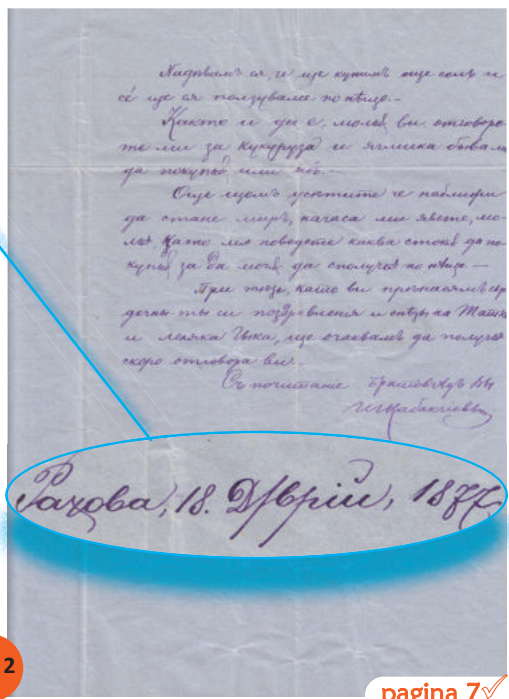 Надѣвамъ ся, че ще купимъ още соль и
се ще ся ползуваме по нѣщо. —
Както и да е, молѭ ви отговоре
те ми за кукуруза и ячмика бива ли
да покупѭ или
Още щомъ усѣтите че наближи
да стане миръ, начаса ми явете, мо-
лѭ, като мя поведете каква стока да по
купѭ за да могѫ да сполучѭ по нѣщо. —
При това, като ви пронасямъ сър
дечны ты си поздравления и онѣзи на Татка
и леляка Цыка, ще очаквамъ да получѭ
скоро отговора ви.
Съ почитание Братовчадъ Вы
И Кабакчіевъ
Рахова, 18. Д/врій, 1877.
2
pagina 7